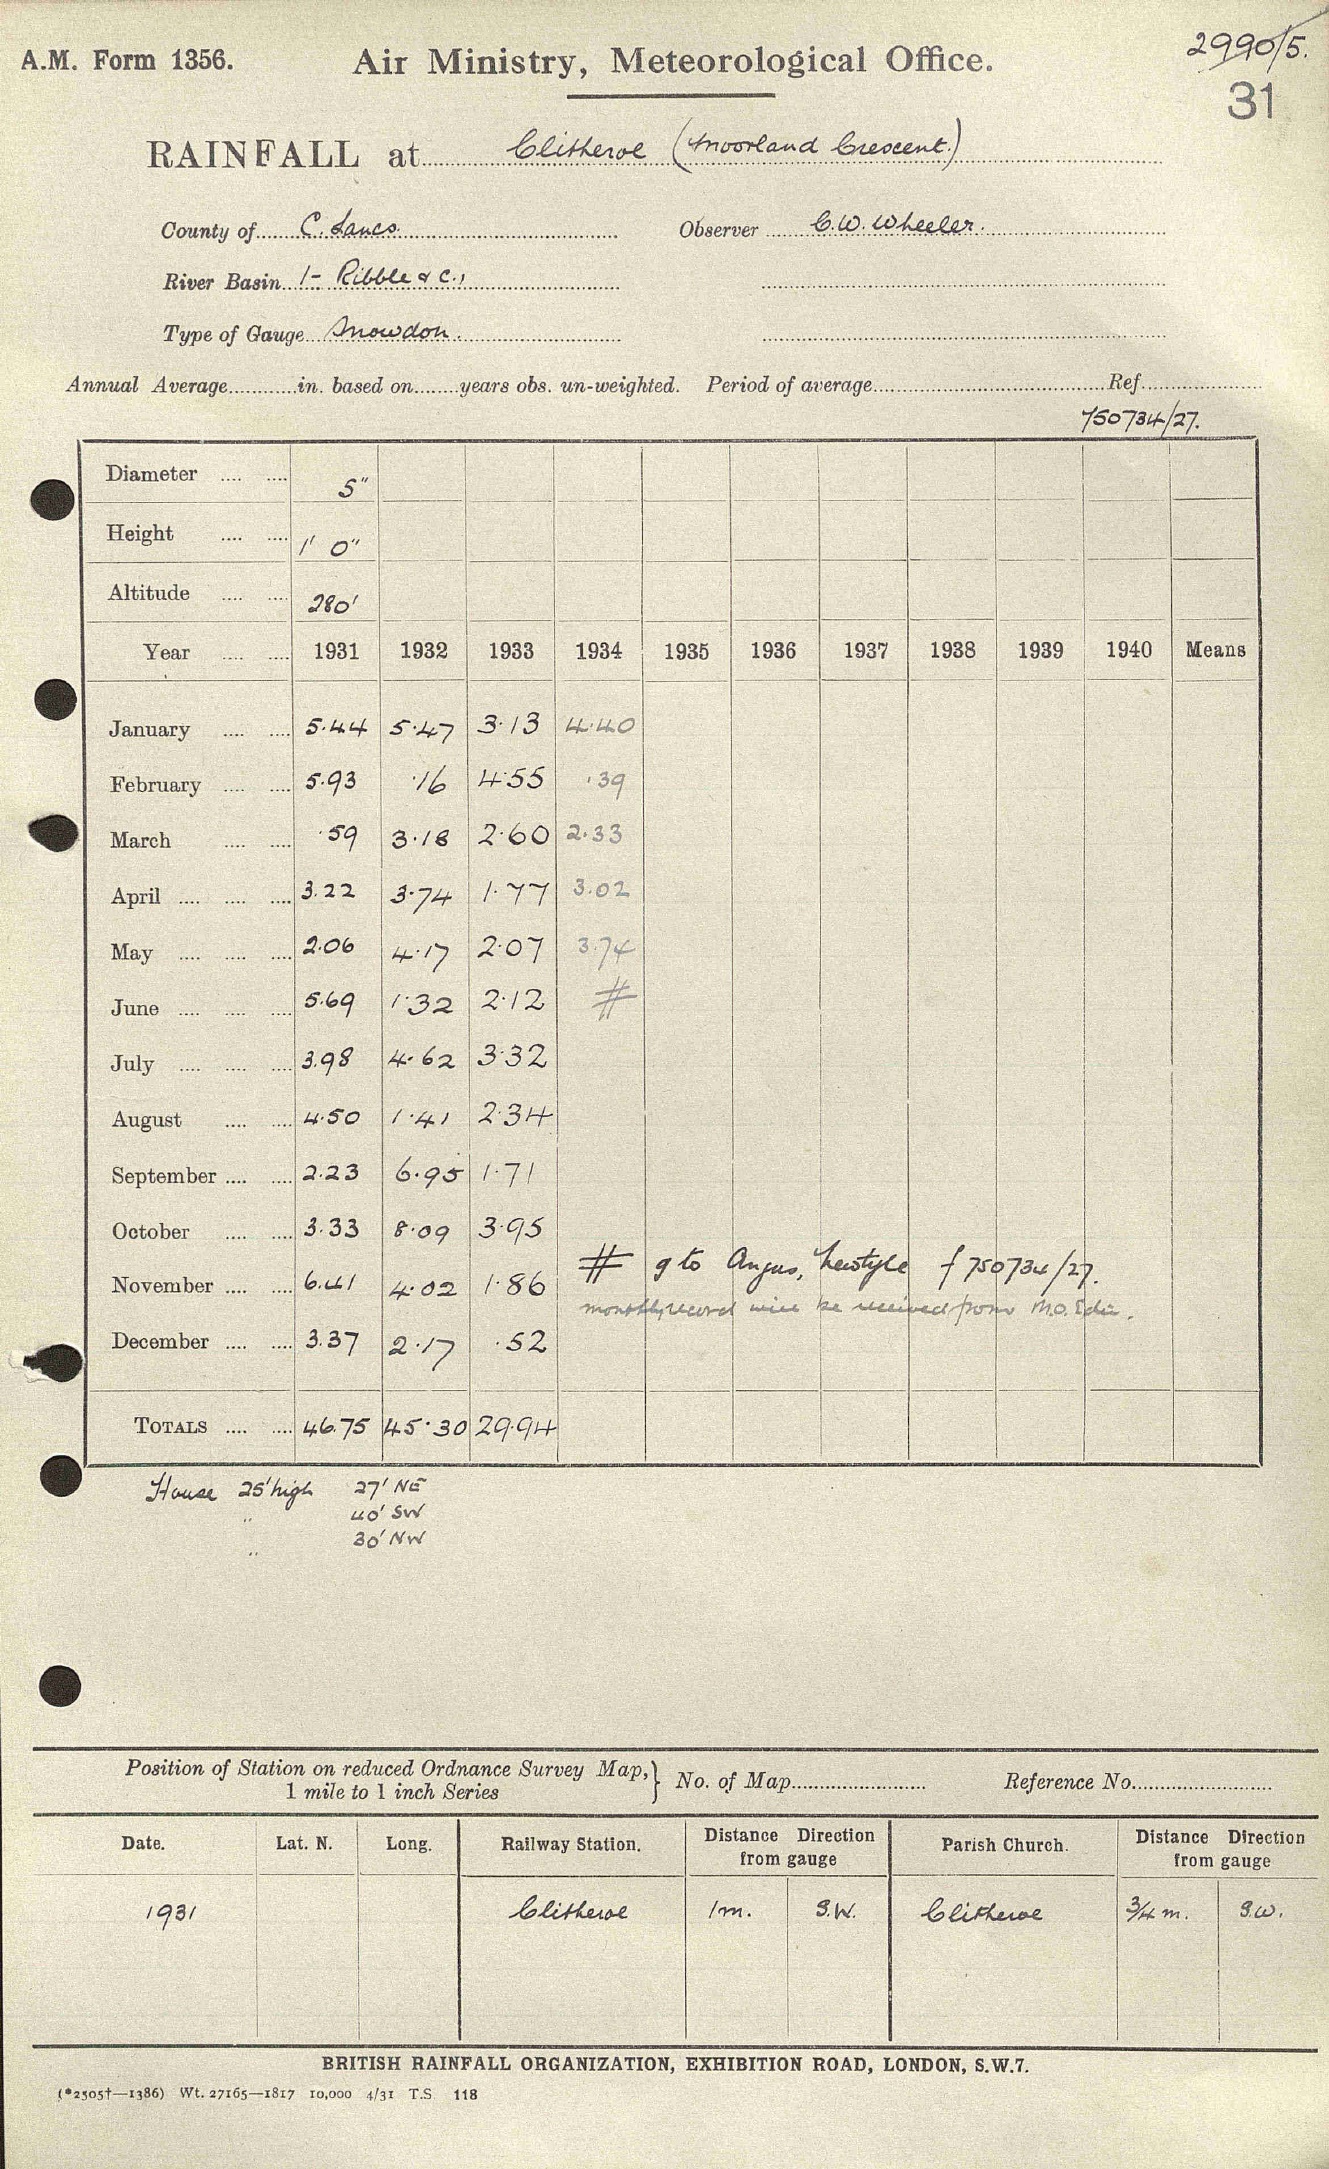 2990/5.
A.M. Form 1356. Air Ministry, Meteorological Office.
31
RAINFALL at Clitheroe (Moorland Crescent.)
County of C. Lancs. Observer C.W. Wheeler.
River Basin 1- Ribble & c.,
Type of Gauge Snowdon.
Annual Average in. based on years obs. un-weighted. Period of average Ref.
750734/27.
Diameter 5"
Height 1' 0"
Altitude 280'
Year 1931 1932 1933 1934 1935 1936 1937 1938 1939 1940 Means
January 5.44 5.47 3.13 4.40
February 5.93 .16 4.55 .39
March .59 3.18 2.60 2.33
April 3.22 3.74 1.77 3.02
May 2.06 4.17 2.07 3.74
June 5.69 1.32 2.12 #
July 3.98 4.62 3.32
August 4.50 1.41 2.34
September 2.23 6.95 1.71
October 3.33 8.09 3.95
# g to Angus, Newtyle f 750734/27.
November 6.41 4.02 1.86
monthly record will be received from M.O. Edin.
December 3.37 2.17 .52
TOTALS 46.75 45.30 29.94
House 25' high 27' NE
" 40' SW
" 30' NW
Position of Station on reduced Ordnance Survey Map, } No. of Map Reference No.
1 mile to 1 inch Series
Date. Lat. N. Long. Railway Station. Distance Direction from gauge Parish Church. Distance Direction from gauge
1931 Clitheroe 1m. S.W. Clitheroe 3/4 m. S.W.
BRITISH RAINFALL ORGANIZATION, EXHIBITION ROAD, LONDON, S.W.7.
(*2505†—1386) Wt. 27165—1817 10,000 4/31 T.S 118